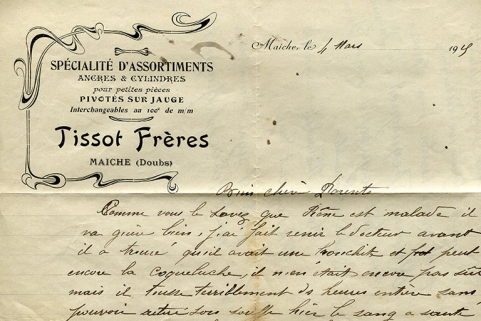 SPÉCIALITÉ D'ASSORTIMENTS
ANCRES & CYLINDRES
pour petites pièces
PIVOTÉS SUR JAUGE
Interchangeables au 100e de m/m
Tissot Frères
MAICHE (Doubs)
Maîche, le 4 Mars 191
Bien chère Parents
Comme vous le savez que est malade il
va guère bien, j'ai fait venir le docteur avant
il a trouvé qu'il avait une bronchite et peut
encore la Coqueluche, il n'en était encore pas sûr
mais il tousse terriblement des heures entière sans
pouvoir son souffle hier le sang a sauté